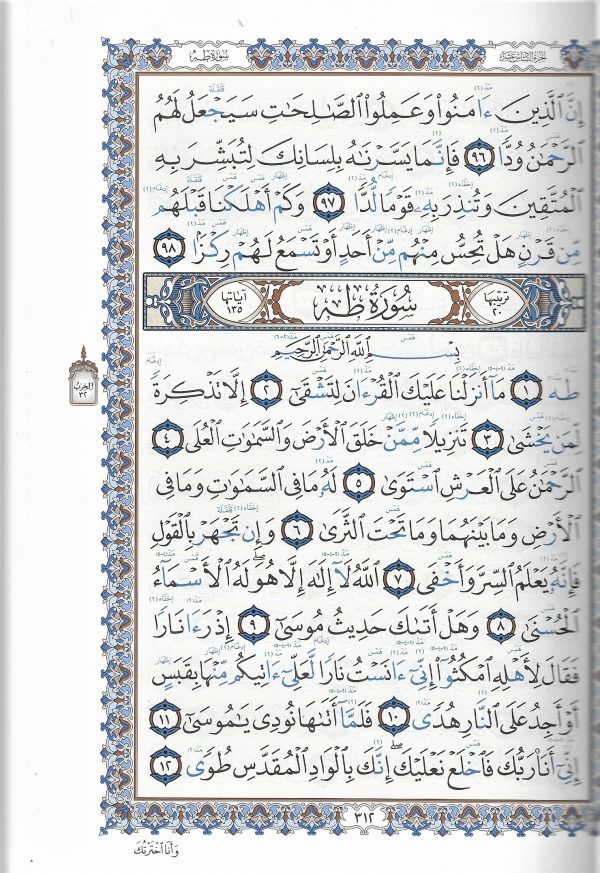 سورة طه
الجزء السادس عشر
إِنَّ ٱلَّذِينَ ءَامَنُواْ وَعَمِلُواْ ٱلصَّـٰلِحَـٰتِ سَيَجۡعَلُ لَهُمُ
ٱلرَّحۡمَـٰنُ وُدّٗا ٩٦ فَإِنَّمَا يَسَّرۡنَـٰهُ بِلِسَانِكَ لِتُبَشِّرَ بِهِ
ٱلۡمُتَّقِينَ وَتُنذِرَ بِهِۦ قَوۡمٗا لُّدّٗا ٩٧ وَكَمۡ أَهۡلَكۡنَا قَبۡلَهُم
مِّن قَرۡنٍ هَلۡ تُحِسُّ مِنۡهُم مِّنۡ أَحَدٍ أَوۡ تَسۡمَعُ لَهُمۡ رِكۡزَۢا ٩٨
ترتيبها ٢٠ سُورَةُ طه آياتها ١٣٥
بِسۡمِ ٱللَّهِ ٱلرَّحۡمَـٰنِ ٱلرَّحِيمِ
طه ١ مَآ أَنزَلۡنَا عَلَيۡكَ ٱلۡقُرۡءَانَ لِتَشۡقَىٰٓ ٢ إِلَّا تَذۡكِرَةٗ
لِّمَن يَخۡشَىٰ ٣ تَنزِيلٗا مِّمَّنۡ خَلَقَ ٱلۡأَرۡضَ وَٱلسَّمَـٰوَٰتِ ٱلۡعُلَى ٤
ٱلرَّحۡمَـٰنُ عَلَى ٱلۡعَرۡشِ ٱسۡتَوَىٰ ٥ لَهُۥ مَا فِي ٱلسَّمَـٰوَٰتِ وَمَا فِي
ٱلۡأَرۡضِ وَمَا بَيۡنَهُمَا وَمَا تَحۡتَ ٱلثَّرَىٰ ٦ وَإِن تَجۡهَرۡ بِٱلۡقَوۡلِ
فَإِنَّهُۥ يَعۡلَمُ ٱلسِّرَّ وَأَخۡفَى ٧ ٱللَّهُ لَآ إِلَـٰهَ إِلَّا هُوَۖ لَهُ ٱلۡأَسۡمَآءُ
ٱلۡحُسۡنَىٰ ٨ وَهَلۡ أَتَىٰكَ حَدِيثُ مُوسَىٰٓ ٩ إِذۡ رَءَا نَارٗا
فَقَالَ لِأَهۡلِهِ ٱمۡكُثُوٓاْ إِنِّيٓ ءَانَسۡتُ نَارٗا لَّعَلِّيٓ ءَاتِيكُم مِّنۡهَا بِقَبَسٍ
أَوۡ أَجِدُ عَلَى ٱلنَّارِ هُدٗى ١٠ فَلَمَّآ أَتَىٰهَا نُودِيَ يَـٰمُوسَىٰٓ ١١
إِنِّيٓ أَنَا۠ رَبُّكَ فَٱخۡلَعۡ نَعۡلَيۡكَۖ إِنَّكَ بِٱلۡوَادِ ٱلۡمُقَدَّسِ طُوٗى ١٢
الحزب ٣٢
٣١٢
وَأَنَا ٱخۡتَرۡتُكَ